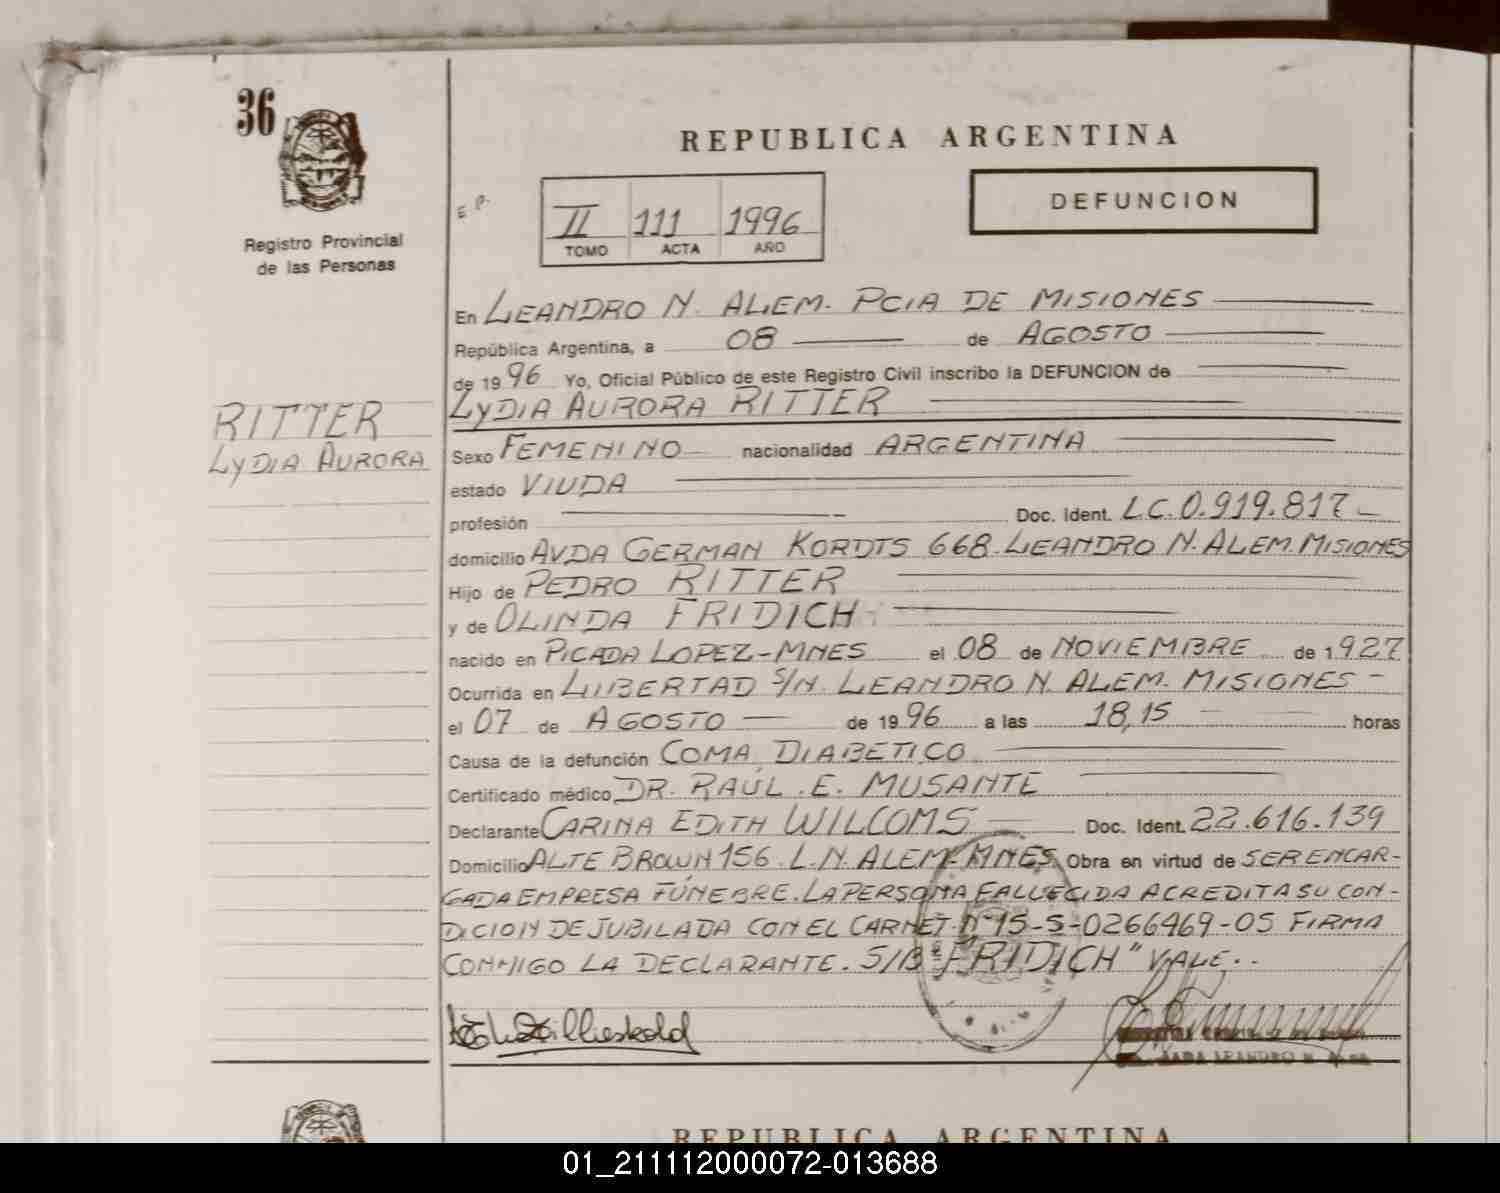 36
REPUBLICA ARGENTINA
DEFUNCION
Registro Provincial
de las Personas
E.P.
II 111 1996
TOMO ACTA AÑO
En LEANDRO N. ALEM. PCIA DE MISIONES
República Argentina, a 08 de AGOSTO
de 1996 Yo, Oficial Público de este Registro Civil inscribo la DEFUNCION de
LYDIA AURORA RITTER
RITTER
LYDIA AURORA
Sexo FEMENINO nacionalidad ARGENTINA
estado VIUDA
profesión Doc. Ident. L.C.0.919.817
domicilio AVDA GERMAN KORDTS 668. LEANDRO N. ALEM. MISIONES
Hijo de PEDRO RITTER
y de OLINDA FRIDICH
nacido en PICADA LOPEZ-MNES el 08 de NOVIEMBRE de 1927
Ocurrida en LUIBERTAD S/N. LEANDRO N. ALEM. MISIONES -
el 07 de AGOSTO de 1996 a las 18,15 horas
Causa de la defunción COMA DIABETICO
Certificado médico DR. RAÚL. E. MUSANTE
Declarante CARINA EDITH WILCOMS Doc. Ident. 22.616.139
Domicilio ALTE BROWN 156. L.N. ALEM-MNES. Obra en virtud de SER ENCAR-
GADA EMPRESA FÚNEBRE. LA PERSONA FALLECIDA ACREDITA SU CON-
DICION DE JUBILADA CON EL CARNET N°15-5-0266469-05 FIRMA
CONMIGO LA DECLARANTE. S/B "FRIDICH" VALE..
REPUBLICA ARGENTINA
01_211112000072-013688